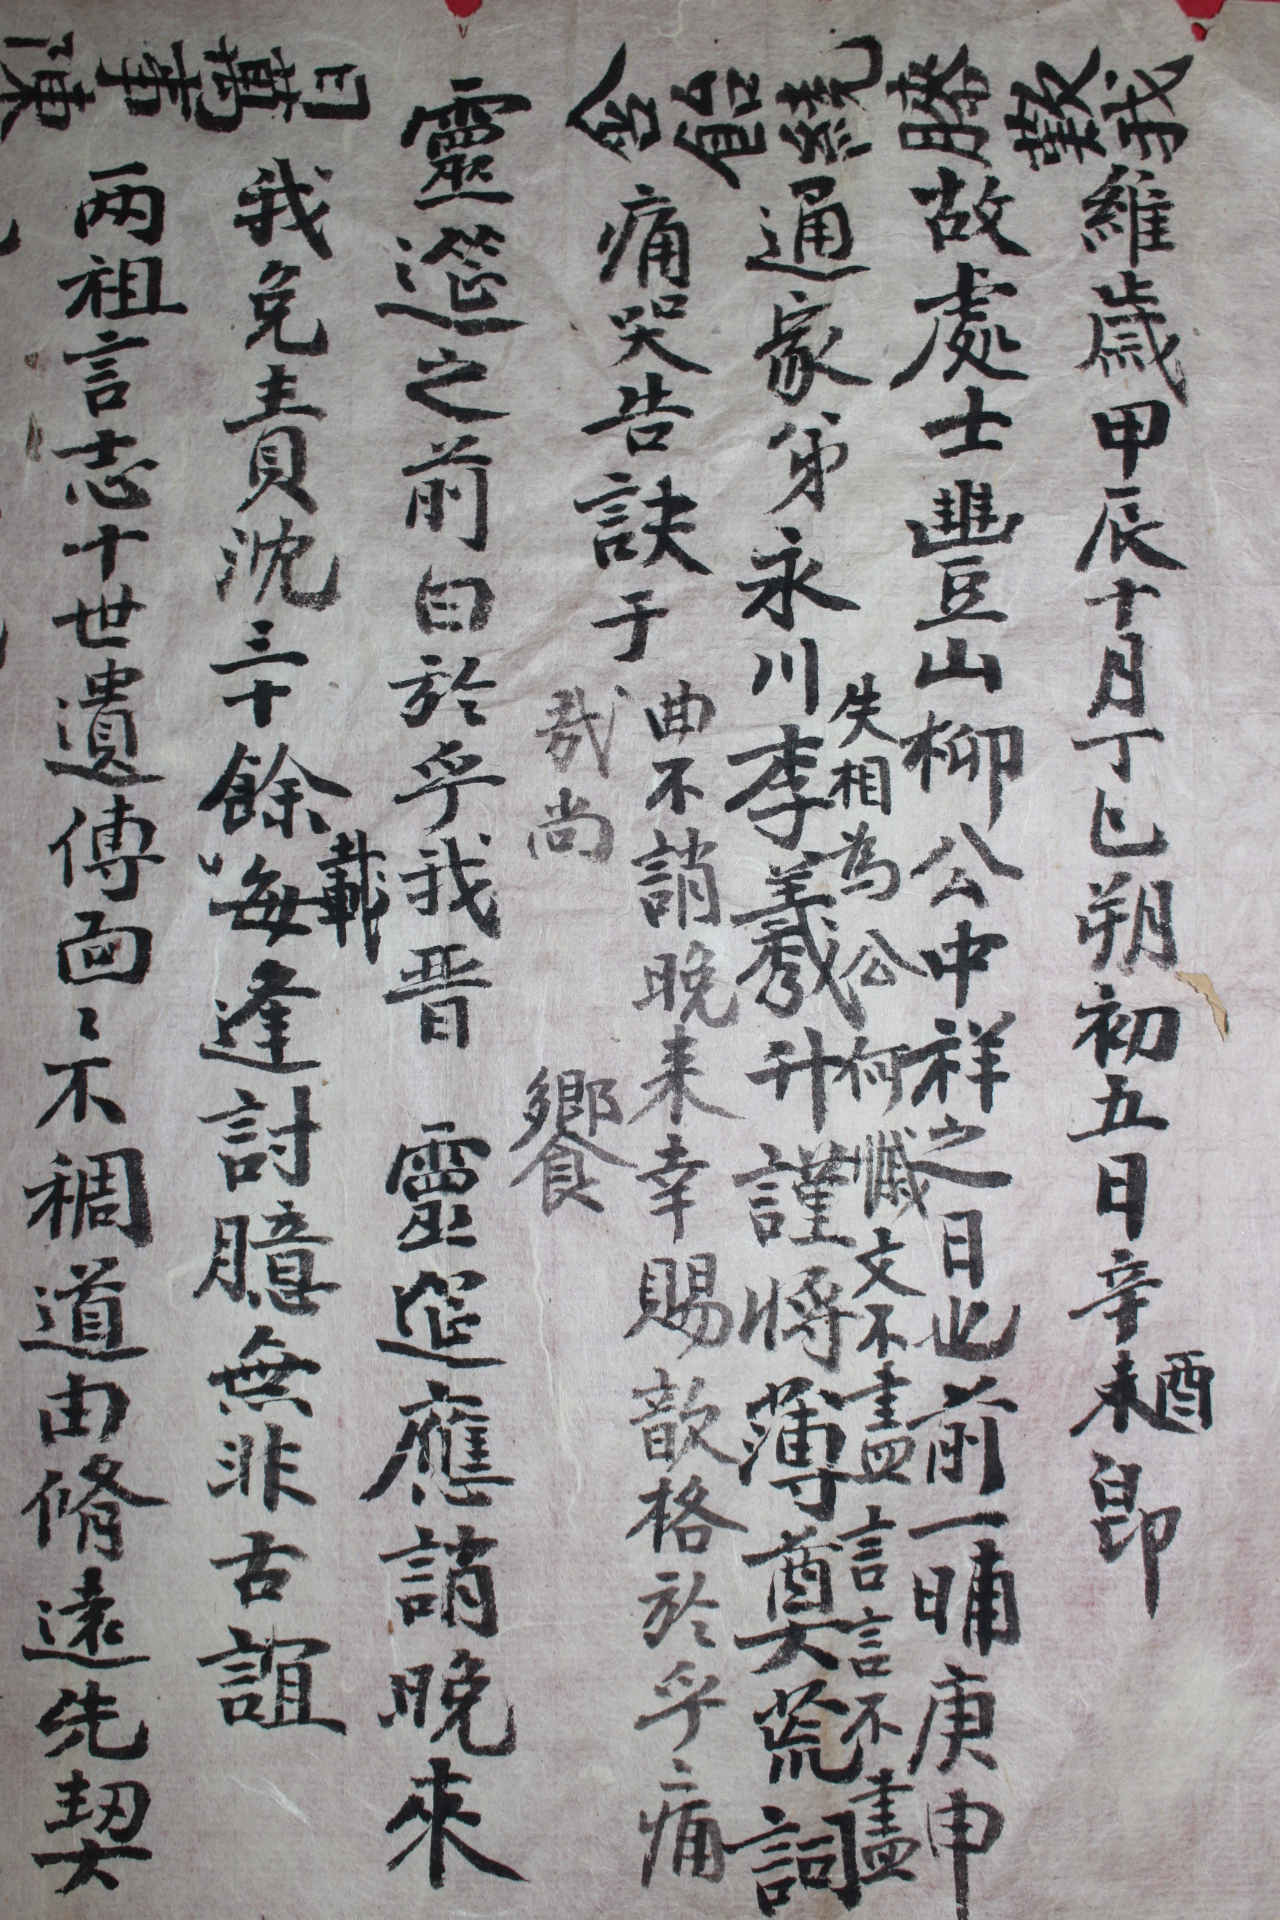 維歲甲辰十月丁巳朔初五日辛未酉卽
故處士豐山柳公中祥之日也前一晡庚申
通家弟永川李羲升謹將薄奠荒詞
痛哭告訣于
靈筵之前曰於乎我晋 靈筵應誚晚來
我免責沈三十餘載每逢討臆無非古誼
兩祖言志十世遺傳面〻不稠道由脩遠先契
失相為公何慽文不盡言言不盡
曲不誚晚来幸賜歆格於乎痛
哉尚 饗
我
數
飴
含
日
萬事
陳